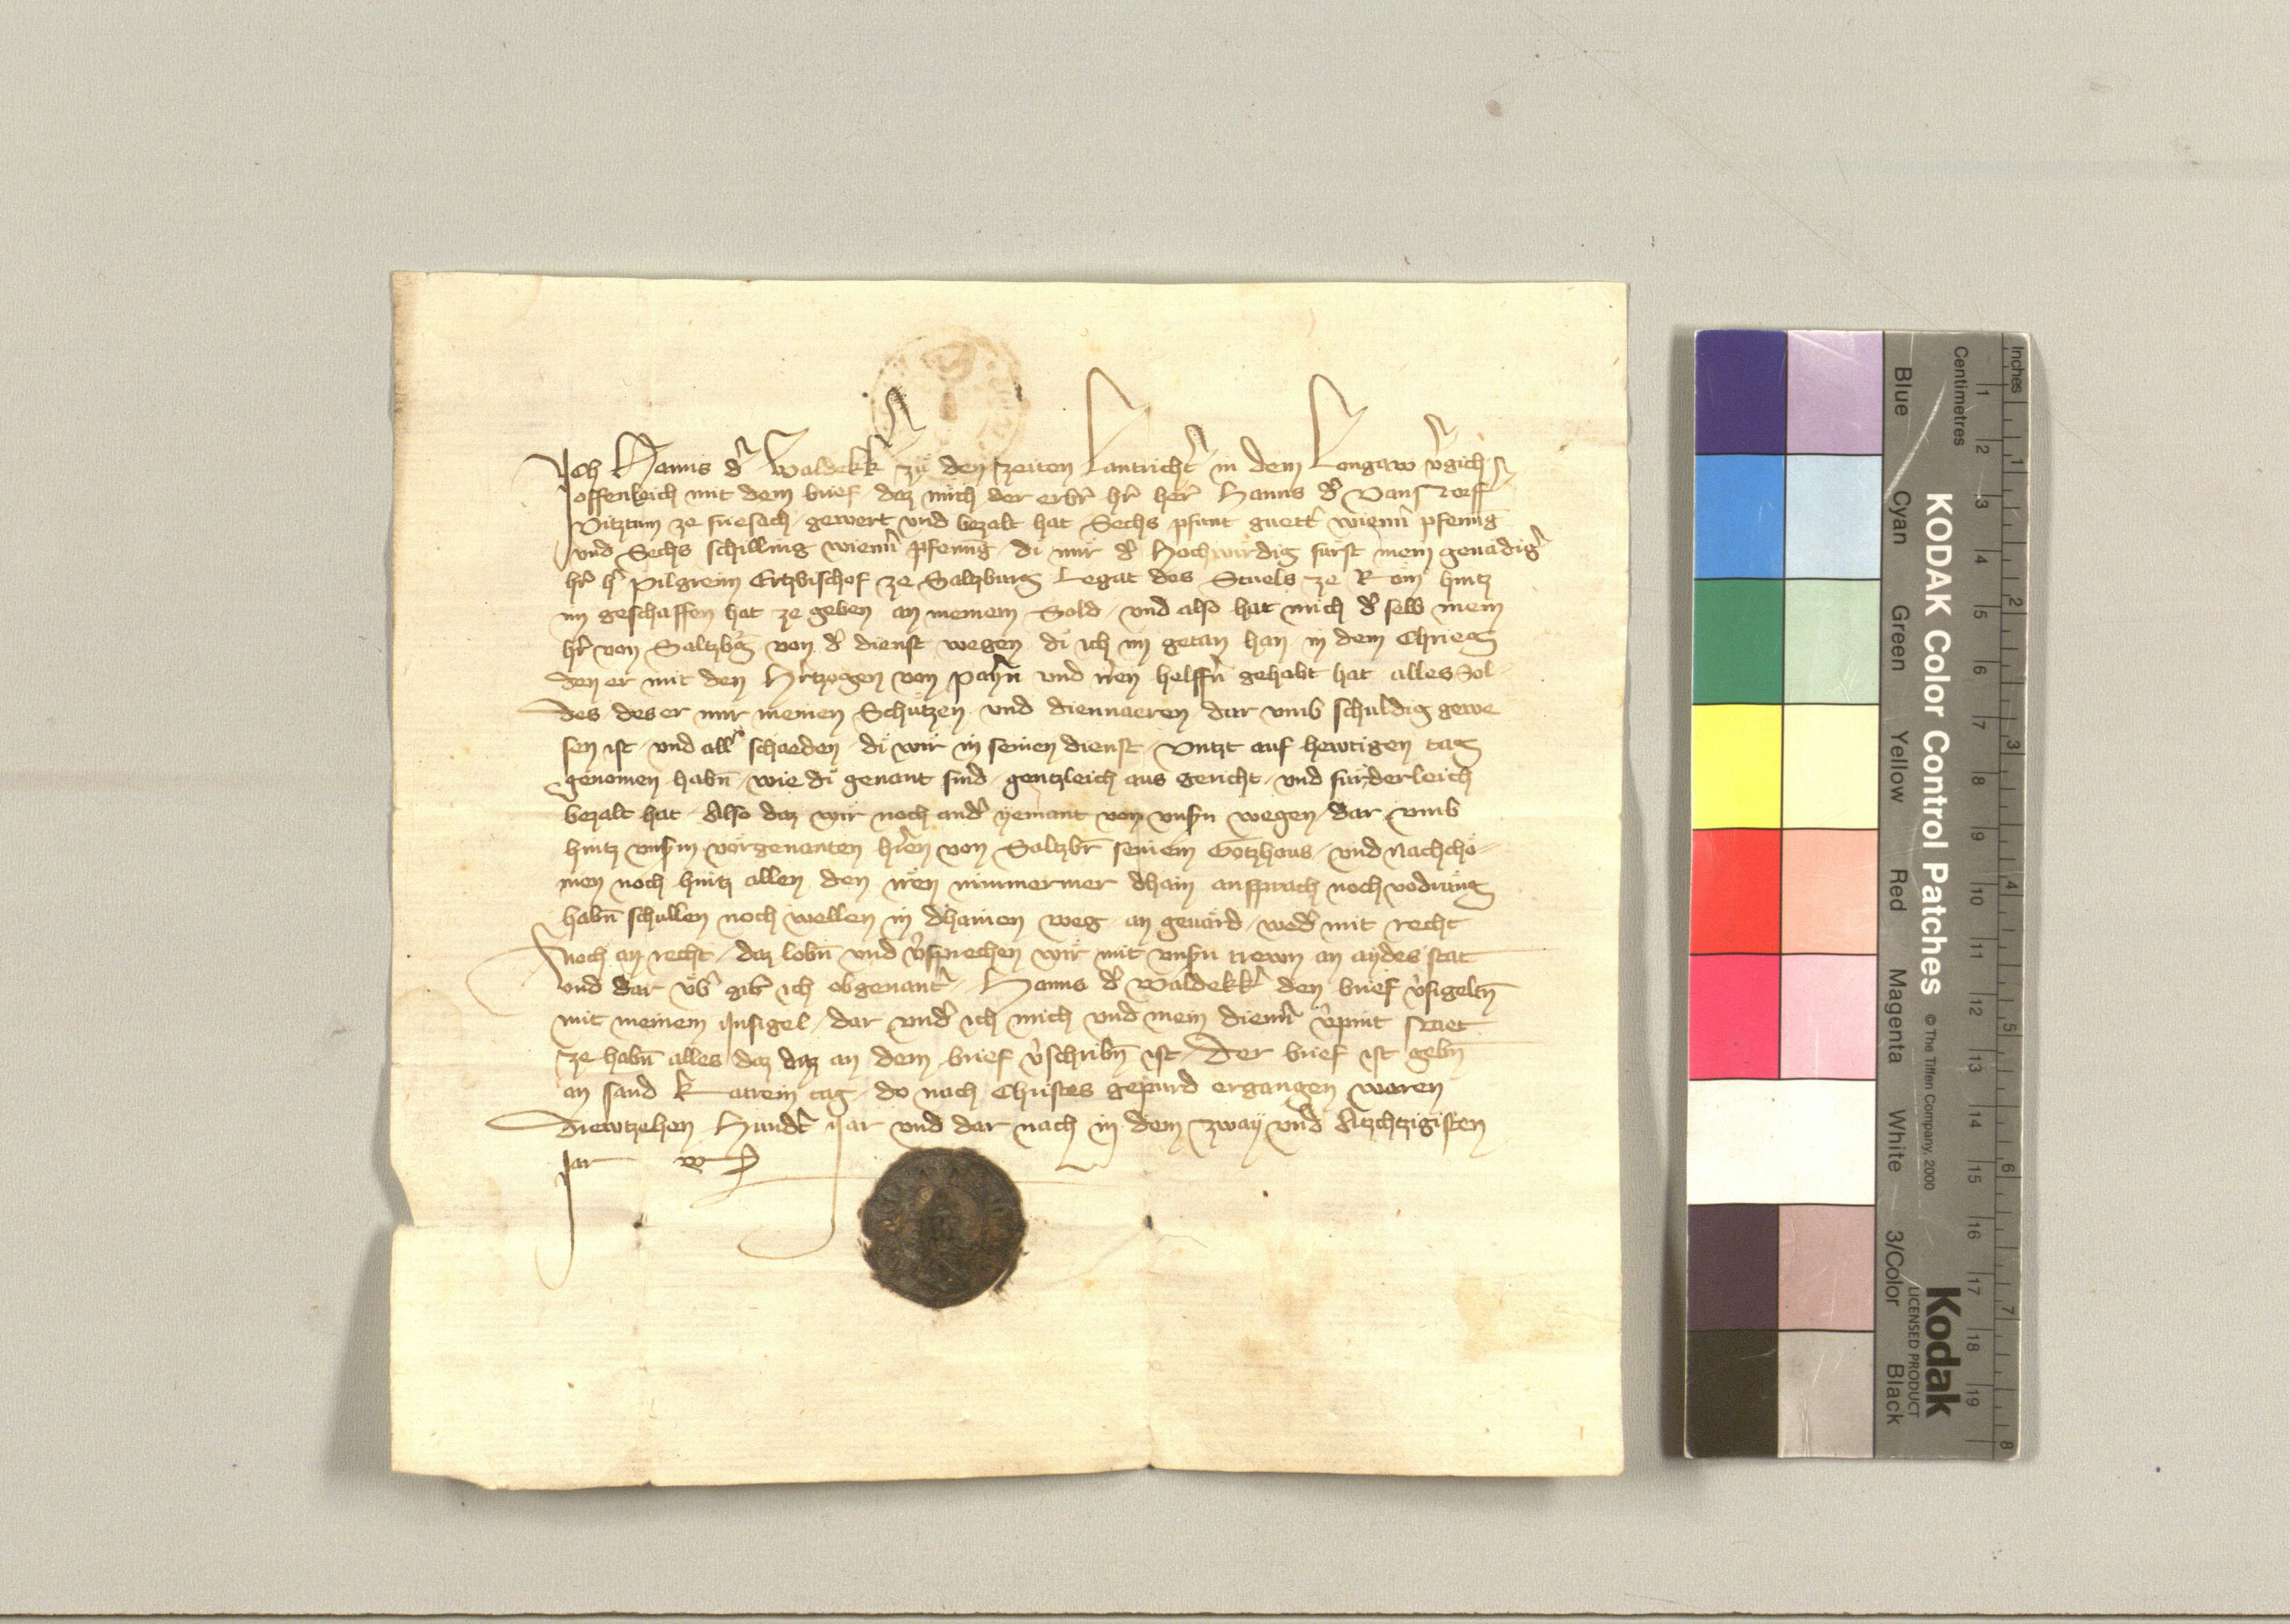 Ich Hanns d͛ Waldekk͛ zů den zeiten Lantricht͛ in dem Longaw v͛gich
offenleich mit dem brief daz mich der erb͛ h͛r her͛ Hanns d͛ Vansdorff
Vitztum ze friesach gewert vnd bezalt hat Sechs phunt guett͛ wienn͛ pfenīg
vnd Sechs schilling wienn͛ pfenīg di mir d͛ Hochwirdig fürst mein genädig͛
h͛r h͛r Pilgreim Ertzbischof ze Saltzburg Legat des Stuels ze Rom hintz
im geschaffen hat ze geben an meinem Sold vnd also hat mich d͛ selb mein
h͛r von Saltzb͛g von d͛ dienst wegen di ich im getan han in dem Chrieg
den er mit den H͛rtzogen von Pay͛n vnd iren helff͛n gehabt hat alles Sol-
des des er mir meinen Schützen vnd diennaeren dar vmb schuldig gewe
sen ist vnd all͛ schaeden di wir in seinen dienst vntzt auf hewtigen tag
genomen habn̄ wie di genant sind gentzleich aus gericht vnd fürderleich
bezalt hat Also daz wir noch and͛ yemant von vns͛n wegen dar vmb
hintz vns͛m vorgenanten h͛ren von Saltzbr̄ seinem Gotzhaus vnd nachchö-
men noch hintz allen den iren nimmermer dhain ansprach noch vodrung
habn̄ schullen noch wellen in dhainen weg an geuärd wed͛ mit recht
noch an recht daz lobn̄ vnd v͛sprechen wir mit vns͛n trewn an aydes stat
vnd dar vb͛ gib ich obgenant͛ Hanns d͛ Waldekk͛ den brief v͛sigeltn̄
mit meinem Insigel dar vnd͛ ich mich vnd mein dienn͛ v͛pint staet
ze habn̄ alles daz daz an dem brief v͛schribn̄ ist Der brief ist gebn̄
an sand Katrein tag do nach Christes gepurd ergangen waren
Drewtzehen Hund͛t iar vnd dar nach in dem zway vnd Achtzigisten
Jar
KODAK Color Control Patches © The Tiffen Company, 2000
Kodak
LICENSED PRODUCT
Blue Cyan Green Yellow Red Magenta White 3/Color Black
Centimetres 1 2 3 4 5 6 7 8 9 10 11 12 13 14 15 16 17 18 19
Inches 1 2 3 4 5 6 7 8